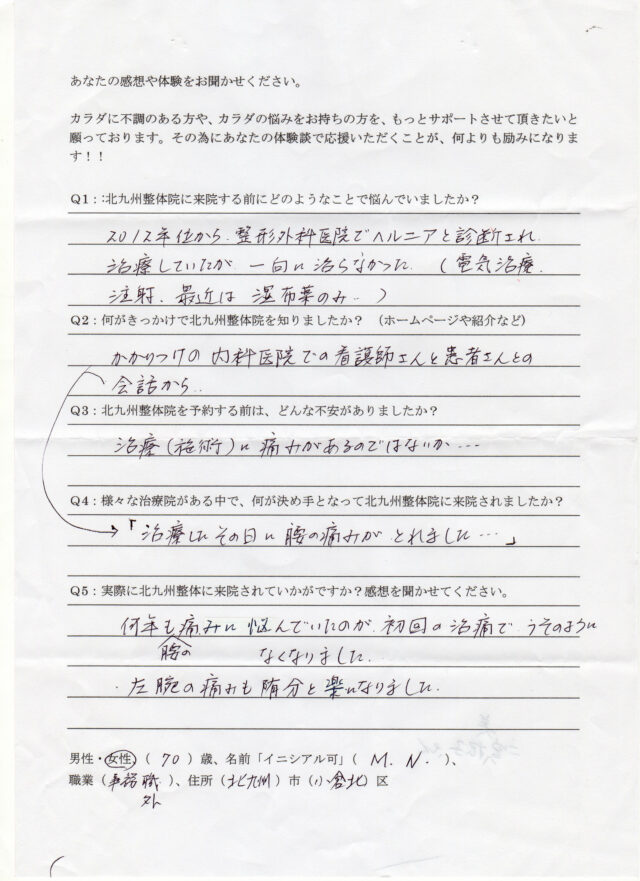 あなたの感想や体験をお聞かせください。
カラダに不調のある方や、カラダの悩みをお持ちの方を、もっとサポートさせて頂きたいと
願っております。その為にあなたの体験談で応援いただくことが、何よりも励みになりま
す！！
Q1：:北九州整体院に来院する前にどのようなことで悩んでいましたか？
2012年位から、整形外科医院でヘルニアと診断され、
治療していたが、一向に治らなかった。（電気治療、
注射、最近は 湿布薬のみ．．）
Q2：何がきっかけで北九州整体院を知りましたか？（ホームページや紹介など）
かかりつけの 内科医院での看護師さんと患者さんとの
会話から．．
Q3：北九州整体院を予約する前は、どんな不安がありましたか？
治療（施術）に痛みがあるのではないか…
Q4：様々な治療院がある中で、何が決め手となって北九州整体院に来院されましたか？
「治療したその日に腰の痛みが とれました…」
Q5：実際に北九州整体に来院されていかがですか？感想を聞かせてください。
何年も腰の痛みに悩んでいたのが、初回の治痛で うそのように
なくなりました．．
・左腕の痛みも随分と楽になりました．
男性・女性、（ 70 ）歳、名前「イニシアル可」（ M. N. ）、
職業（事務職外）、住所（北九州）市（小倉北）区